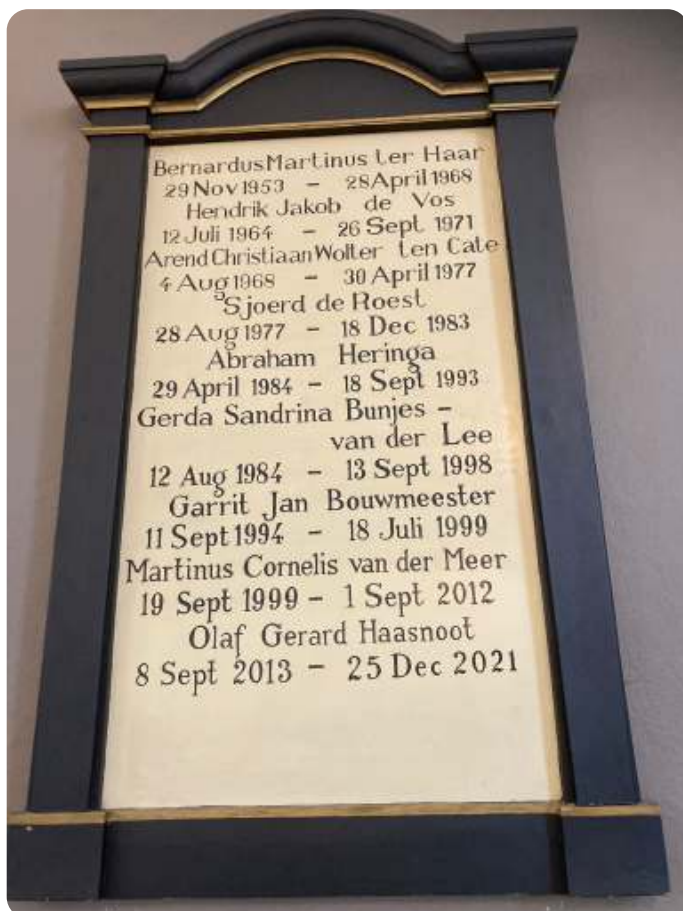 Bernardus Martinus ter Haar
29 Nov 1953 - 28 April 1968
Hendrik Jakob de Vos
12 Juli 1964 - 26 Sept 1971
Arend Christiaan Wolter ten Cate
4 Aug 1968 - 30 April 1977
Sjoerd de Roest
28 Aug 1977 - 18 Dec 1983
Abraham Heringa
29 April 1984 - 18 Sept 1993
Gerda Sandrina Bunjes -
van der Lee
12 Aug 1984 - 13 Sept 1998
Garrit Jan Bouwmeester
11 Sept 1994 - 18 Juli 1999
Martinus Cornelis van der Meer
19 Sept 1999 - 1 Sept 2012
Olaf Gerard Haasnoot
8 Sept 2013 - 25 Dec 2021